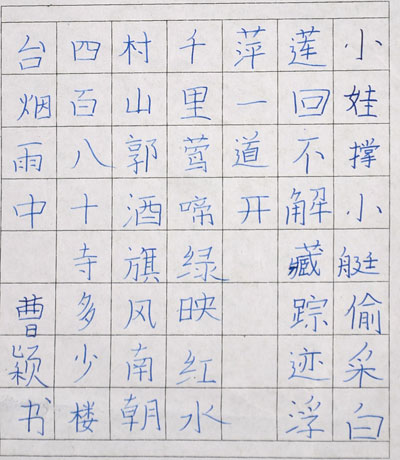 小娃撑小艇偷采白
莲回不解藏踪迹浮
萍一道开
千里莺啼绿映红水
村山郭酒旗风南朝
四百八十寺多少楼
台烟雨中 曹颖书